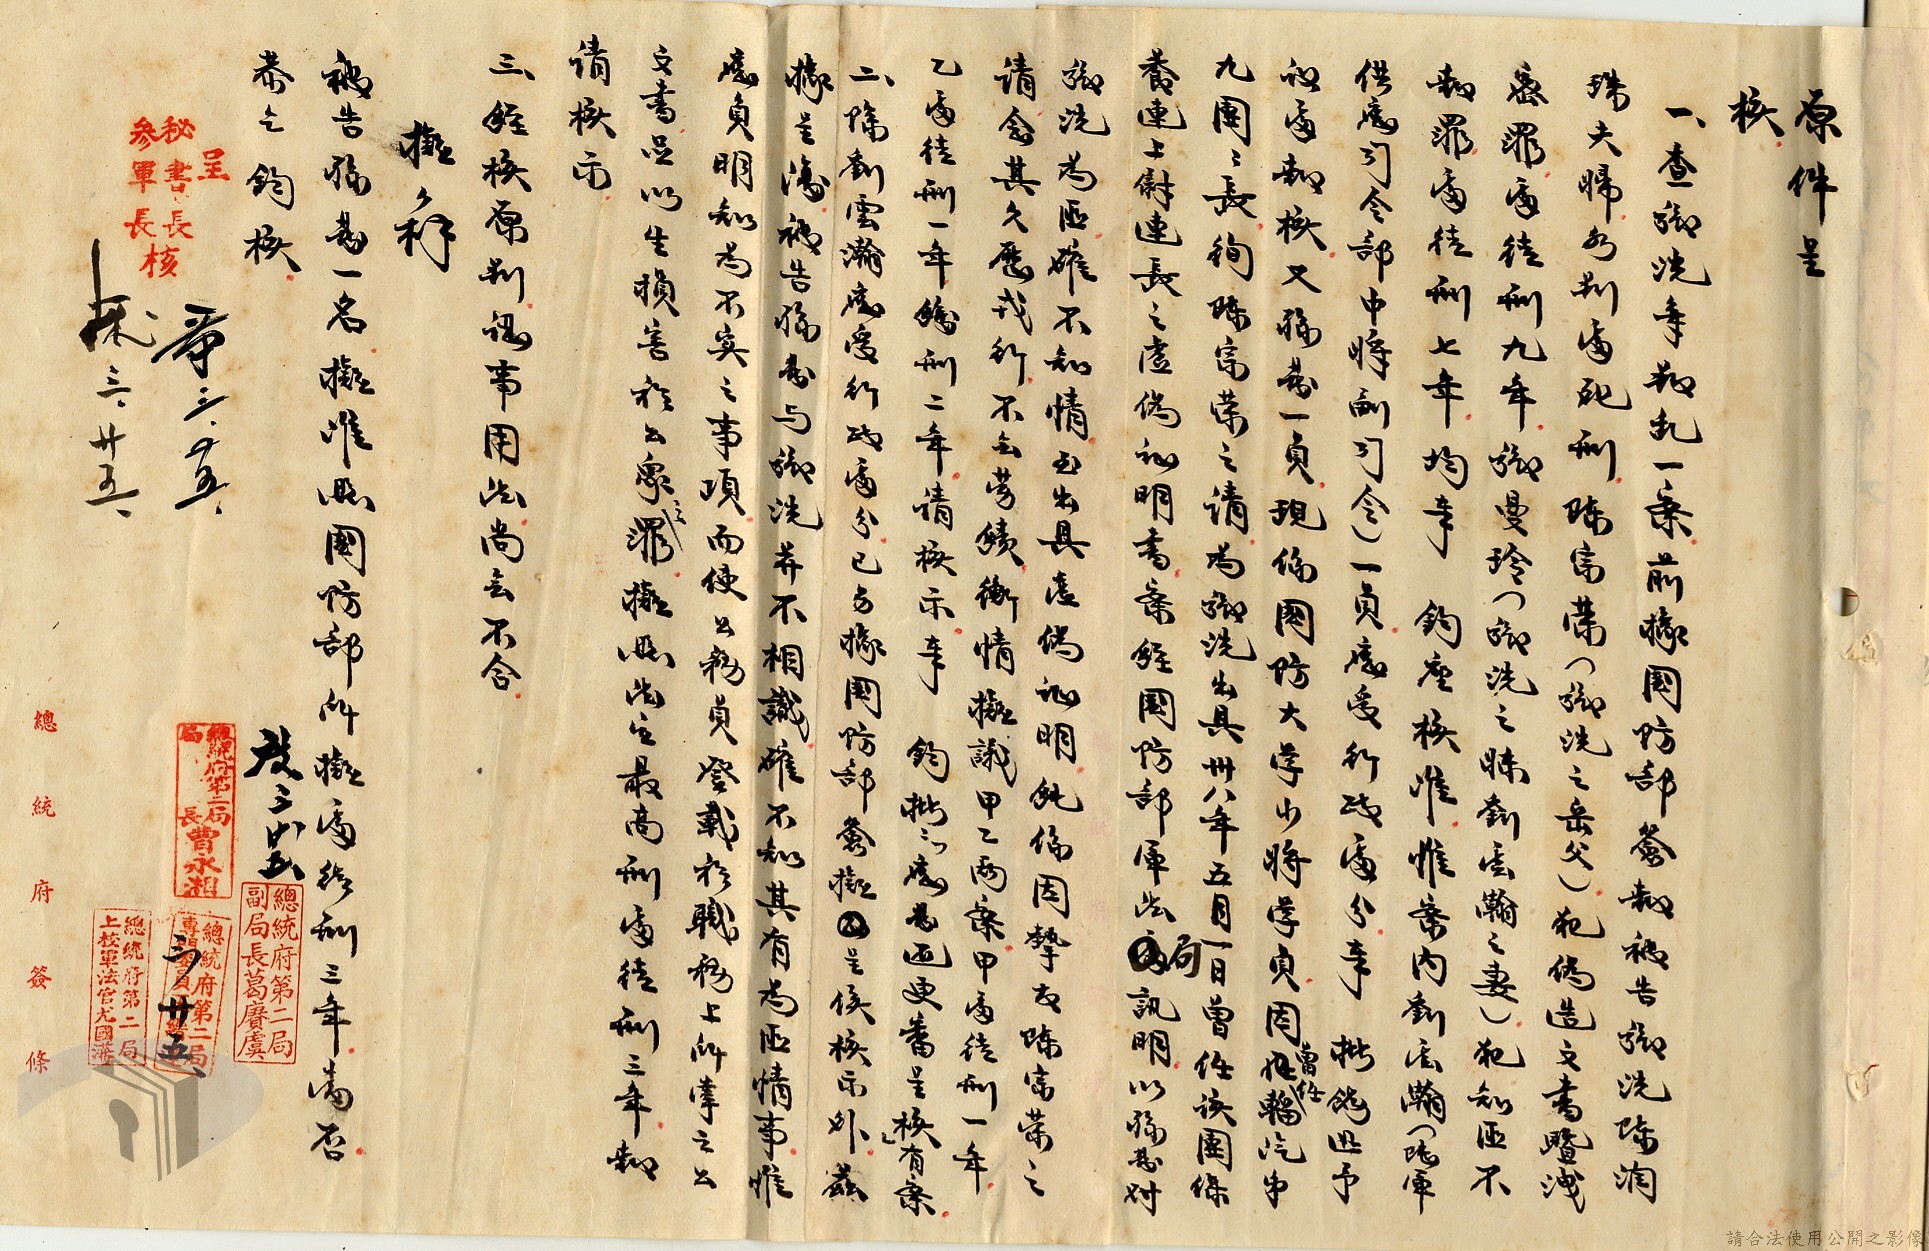 原件呈
核
一、查鄒洗等叛亂一案前據國防部簽報被告鄒洗陳淘
珠夫婦各判處死刑陳富榮(鄒洗之岳父)犯偽造文書暨洩
密罪處徒刑九年鄒曼玲(鄒洗之妹劉雲瀚之妻)犯知匪不
報罪處徒刑七年均奉 鈞座核准惟案內劉雲瀚(陸軍
供應司令部中將副司令)一員應受行政處分奉 批飭迅予
議處報核又孫甚一員現係國防大學少將學員因曾任輜汽
九團團長徇陳富榮之請為鄒洗出具卅八年五月一日曾任該團保
養連上尉連長之虛偽證明書案經國防部軍法局訊明以孫甚對
鄒洗為匪雖不知情至出具虛偽證明純係因摯友陳富榮之
請念其久歷戎行不無勞績衡情擬議甲乙兩案甲處徒刑一年
乙處徒刑一年緩刑二年請核示奉 鈞批「應另迅更審呈核」有案
二、除劉雲瀚應受行政處分已另據國防部簽擬呈候核示外茲
據呈復被告孫甚與鄒洗并不相識雖不知其有為匪情事惟
應負明知為不實之事項而使公務員登載於職務上所掌之公
文書足以生損害於公眾之罪擬照法定最高刑處徒刑三年報
請核示
三、經核原判認事用法尚無不合
擬辦
被告孫甚一名擬准照國防部所擬處徒刑三年當否
恭乞 鈞核
呈
秘書長
參軍長 核
三、廿五、
三、廿五、
總統府第二局局長曹永湘
總統府第二局副局長葛賡虞
總統府第二局專門委員
三、廿五、
總統府第二局上校軍法官尤國
總統府簽條
請合法使用公開之影像